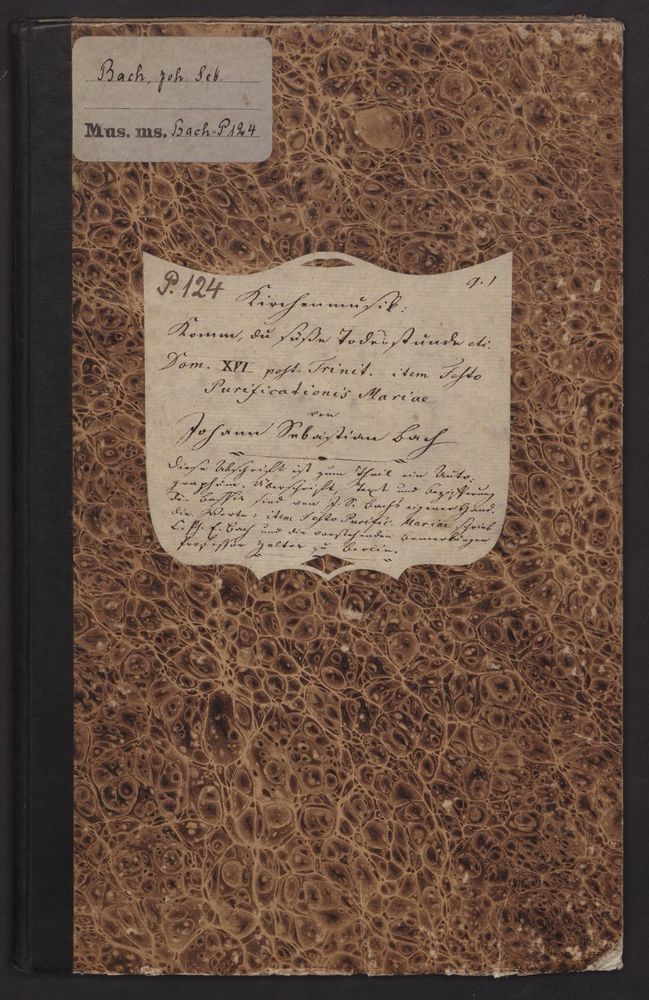 Bach, Joh. Seb.
Mus. ms. Bach P 124
P. 124
9. 1
Kirchenmusik:
Komm, du süße Todesstunde etc.
Dom. XVI post. Trinit. item Festo
Purificationis Mariae
von
Johann Sebastian Bach
Diese Abschrift ist zum Theil ein Auto-
graphum. Überschrift, Text und Bezifferung
des Basses sind von J. S. Bachs eigener Hand.
Die Worte: item Festo Purific. Mariae schrieb
C. Ph. E. Bach und die vorstehenden Bemerkungen
Professor Zelter zu Berlin.